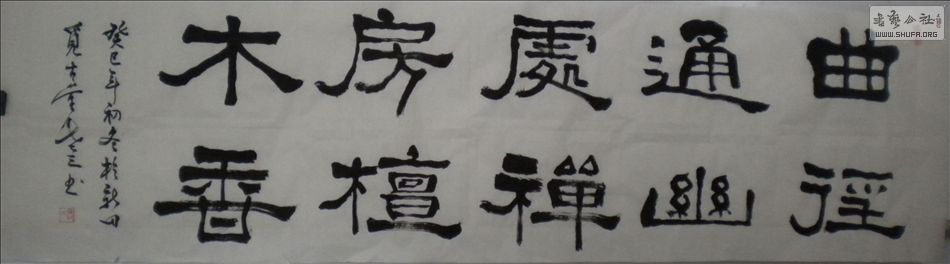 曲徑
通幽
處禪
房檀
木香
癸巳年初冬於新田
書藝公社
WWW.SHUFA.ORG